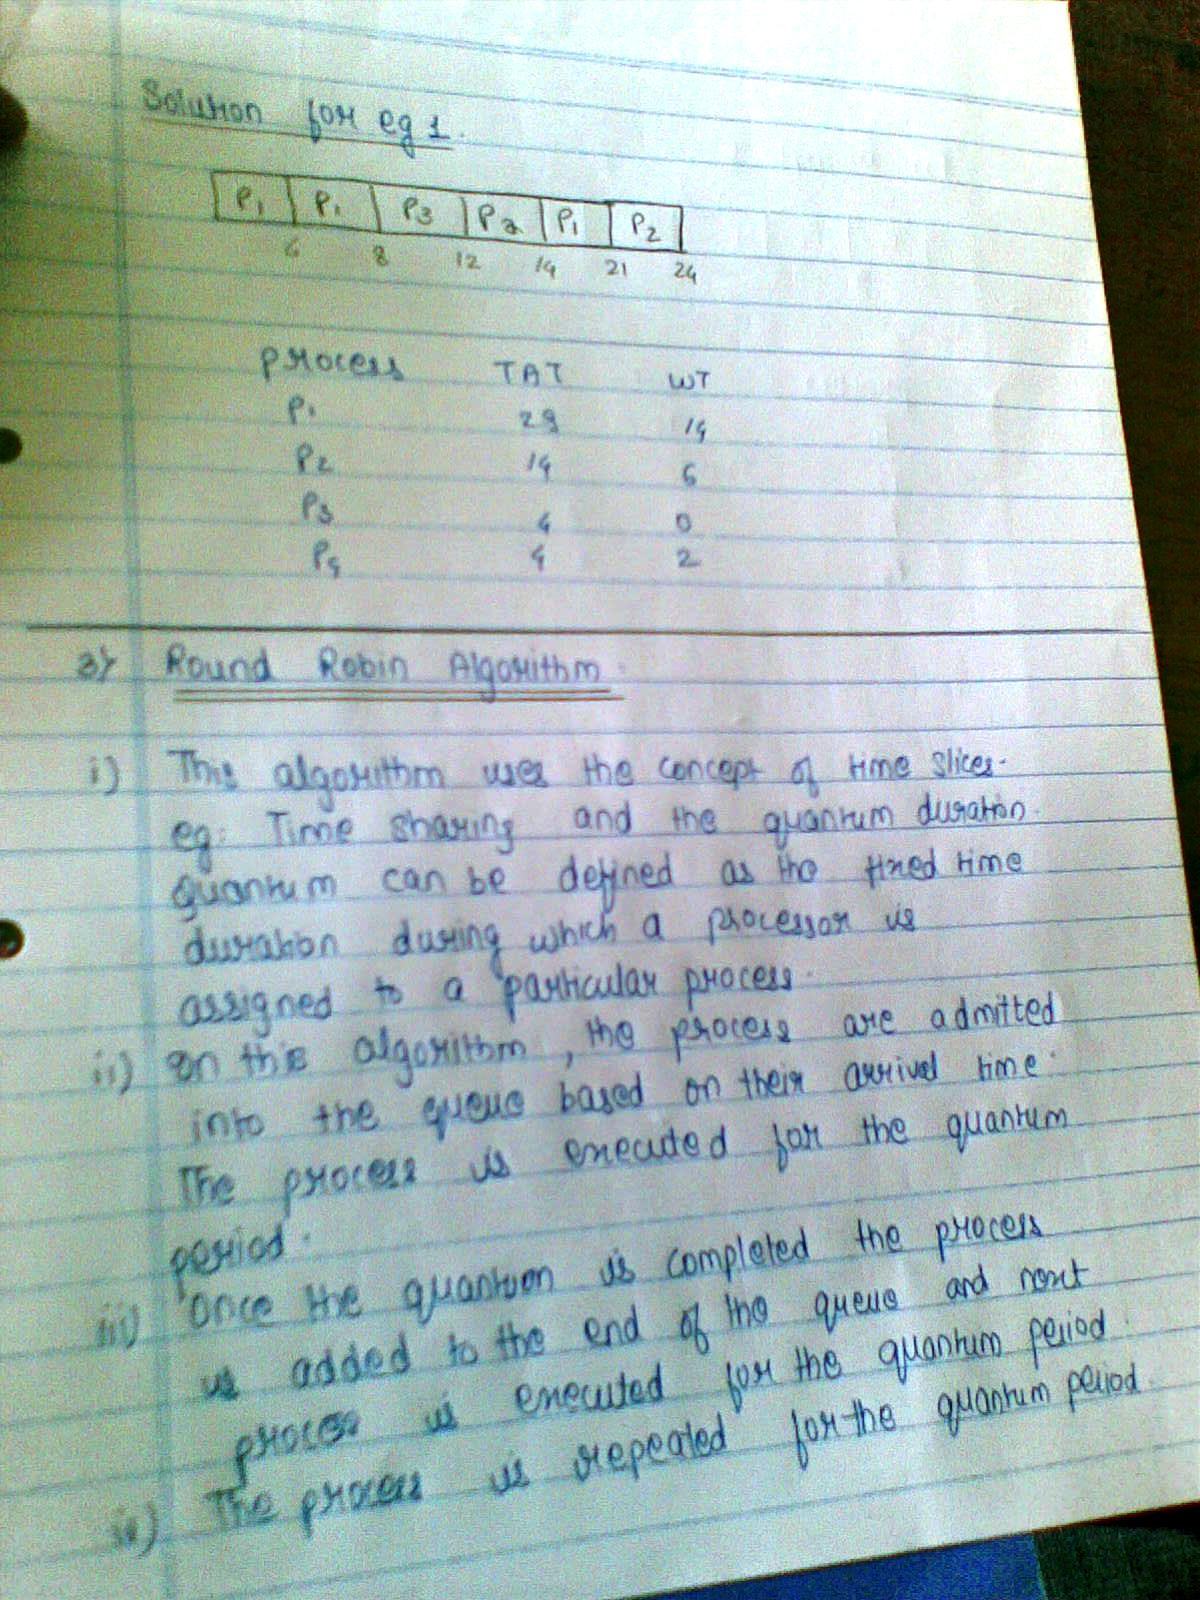 Solution for eg 1.
P1 P1 P3 P2 P1 P2
6 8 12 14 21 24
process TAT WT
P1 14
P2 14 6
P3 4 0
P4 4 2
3) Round Robin Algorithm.
i) This algorithm uses the concept of time slices.
eg: Time sharing and the quantum duration.
quantum can be defined as the fixed time
duration during which a processor is
assigned to a particular process.
ii) In this algorithm, the process are admitted
into the queue based on their arrival time.
The process is executed for the quantum
period.
iii) Once the quantum is completed the process
is added to the end of the queue and next
process is executed for the quantum period.
iv) The process is repeated for the quantum period.